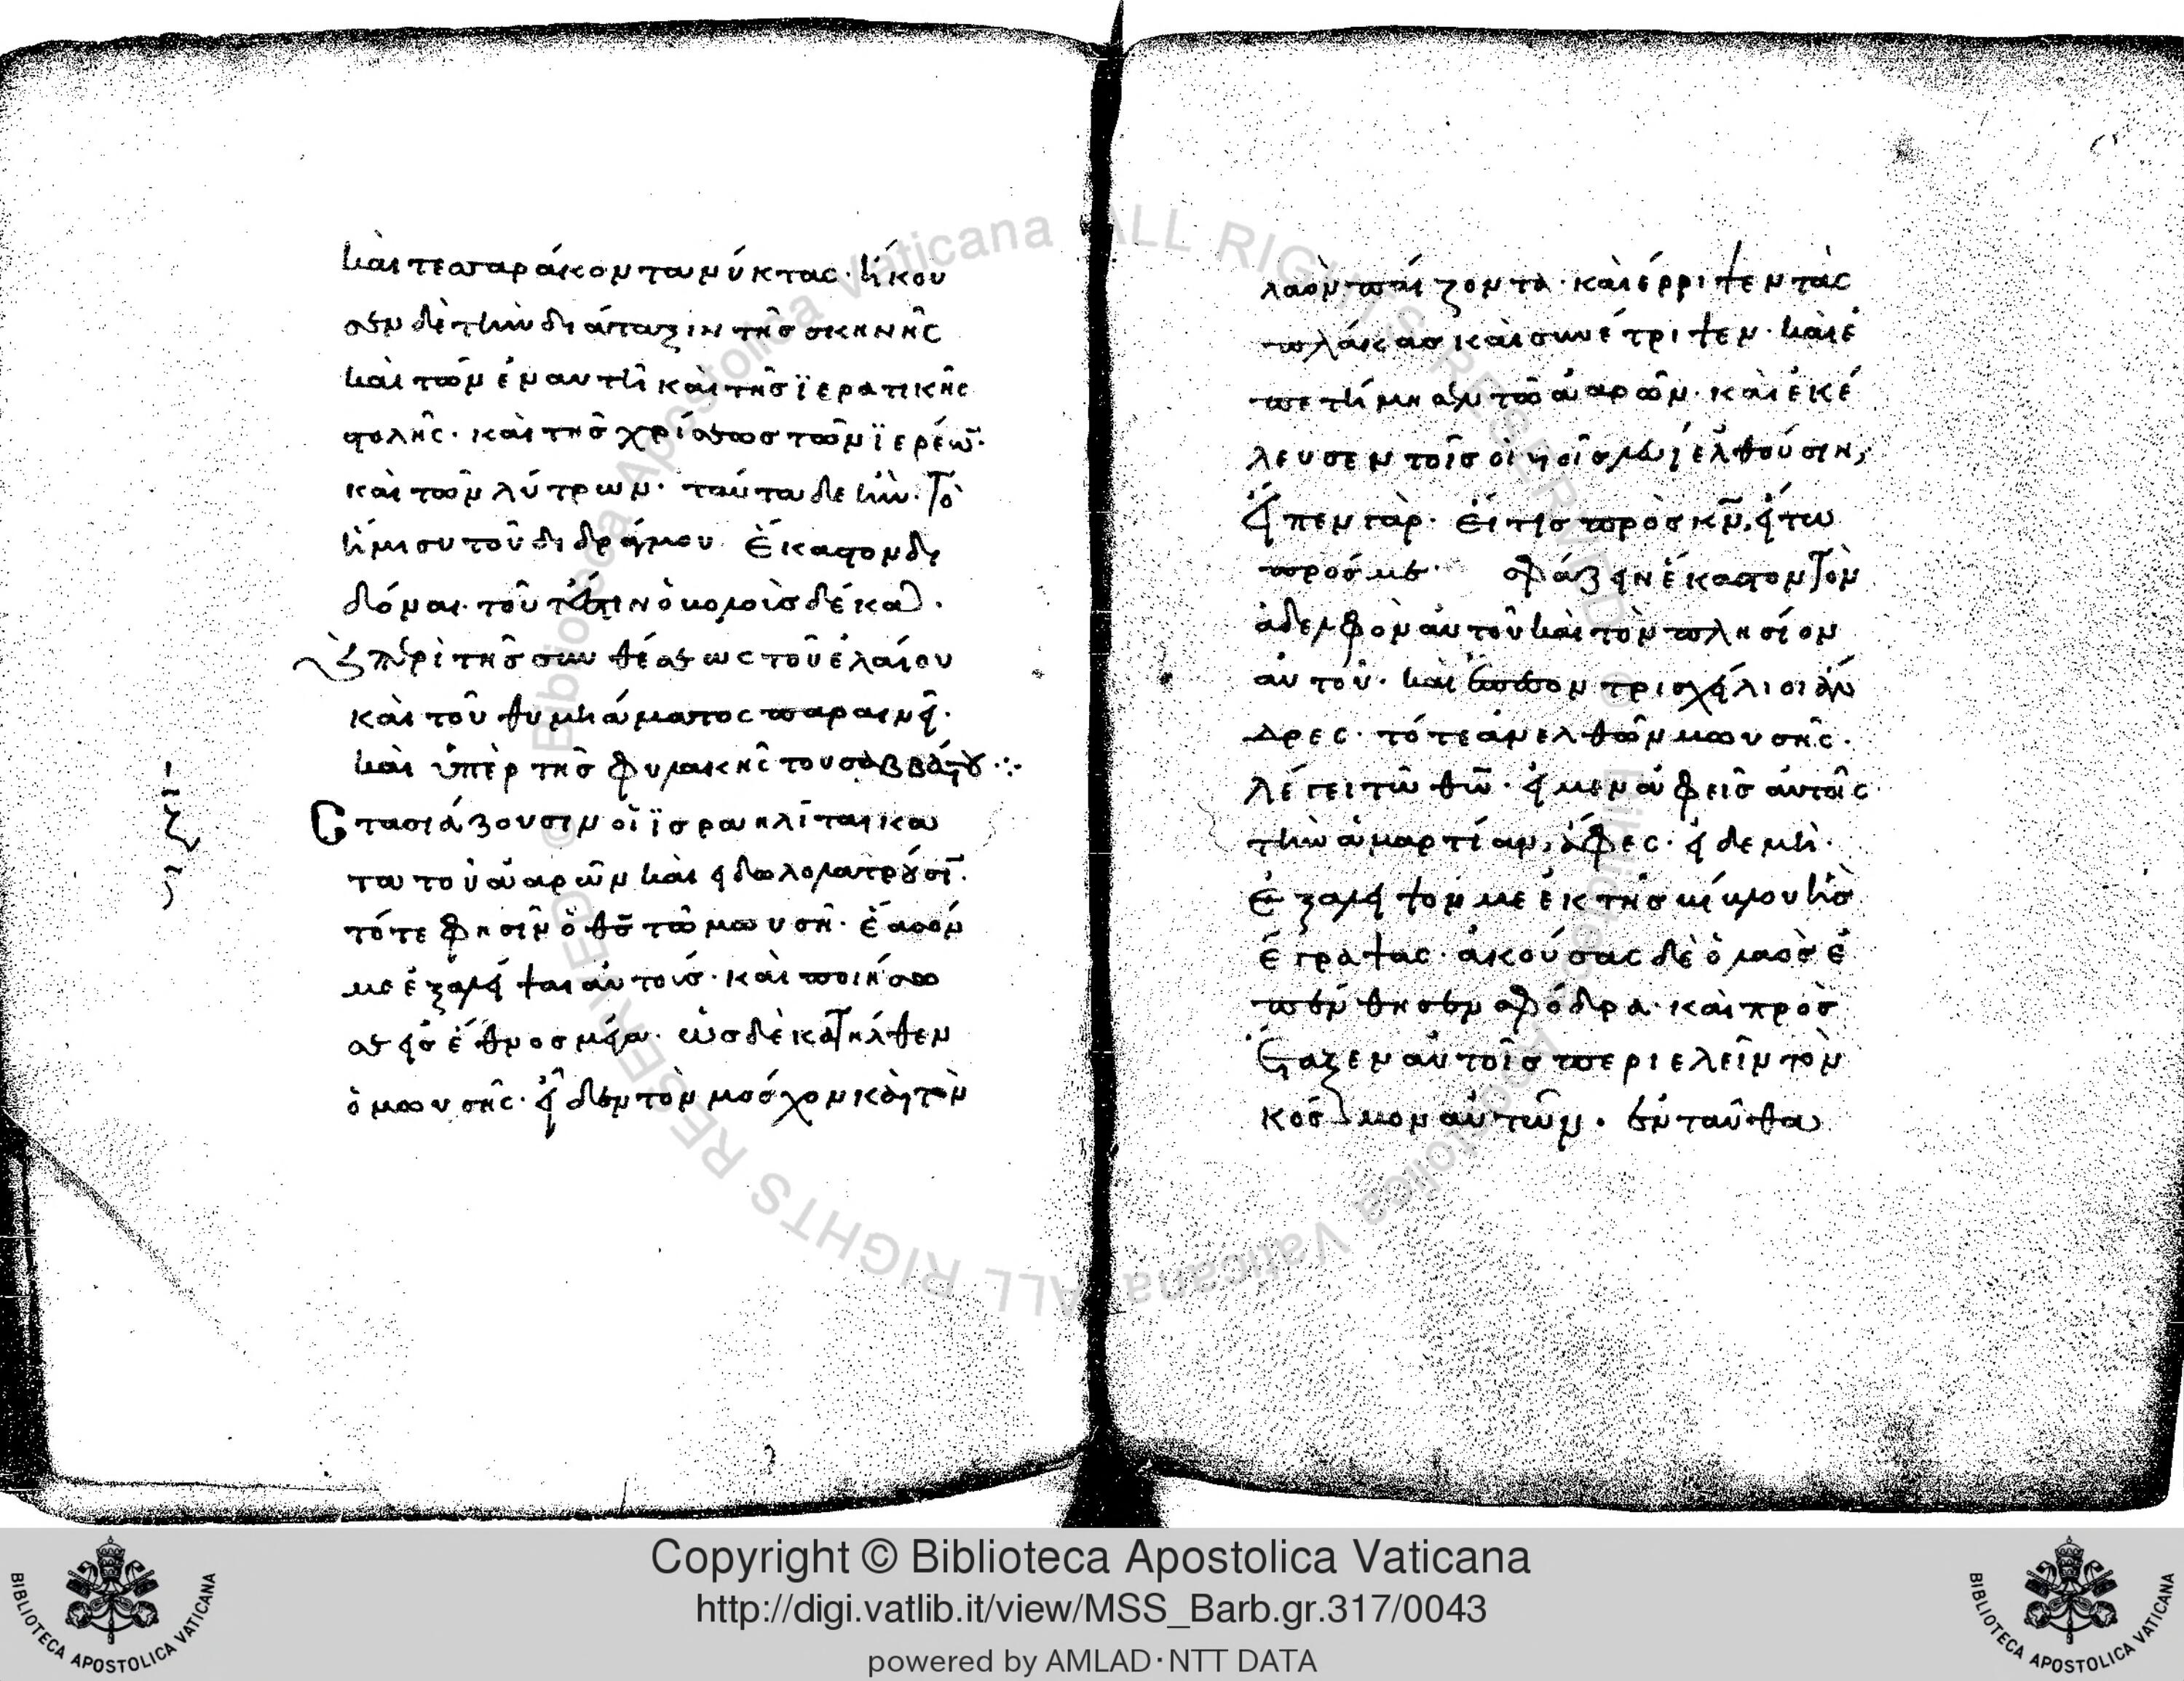 καὶ τεσσαράκοντα νύκτας· ἤκου
σεν δὲ τὴν διάταξιν τῆς σκηνῆς
καὶ τῶν ἐν αυτῆ καὶ τῆς ϊερατικῆς
στολῆς· καὶ τῆς χρίσεως τῶν ϊερέω̅·
καὶ τῶν λύτρων· ταύτα δε ἦν· Τὸ
ἥμισυ τοῦ διδράγμου Ἕκαστον δι
δόναι· τοῦτέστιν ὀβολοὺς δέκα·
Περὶ τῆς συνθέσεως τοῦ ἐλαίου
καὶ τοῦ θυμιάματος παραινεῖ·
καὶ ὑπὲρ τῆς φυλακῆς τοῦ σαββάτου ⁘
Στασιάζουσιν οἱ ϊσραηλῖται κα
τα τοῦ ἀαρὼν καὶ εἰδωλολατροῦσι̅·
τότε φησὶν ὁ θς̅ τῶ μωυσῆ· ἔασόν
με ἐξαλεῖψαι αὐτούς· καὶ ποιήσω
σε εἰς ἔθνος μέγα· ὡς δὲ κατῆλθεν
ὁ μωυσῆς· εἶδεν τὸν μόσχον καὶ τὸν
λαὸν παίζοντα· καὶ ἔρριψεν τὰς
πλάκας καὶ συνέτριψεν· καὶ ἐ
πετίμησεν τῶ ἀαρών· καὶ ἐκέ
λευσεν τοῖς υἱοῖς λευῒ ἐλθοῦσιν,
Εἶπεν γὰρ· εἴ τις πρὸς κν̅, ἴτω
πρός με· σφάξειν ἕκαστον Τὸν
ἀδελφὸν αὐτοῦ καὶ τὸν πλησίον
αὐτοῦ· καὶ ἔπεσον τρισχείλιοι ἄν
δρες· τότε ἀνελθὼν μωυσῆς·
λέγει τῶ θω̅· εἰ μεν ἀφεῖς αὐτοῖς
τὴν ἁμαρτίαν, ἄφες· εἰ δε μὴ·
ἐξάλειψόν με ἐκ τῆς βίβλου ἧς
ἔγραψας· ἀκούσας δὲ ὁ λαὸς ἐ
πένθησεν σφόδρα· καὶ προσ
έταξεν αὐτοῖς περιελεῖν τὸν
κόσμον αὐτῶν· ἐνταῦθα
Copyright © Biblioteca Apostolica Vaticana
http://digi.vatlib.it/view/MSS_Barb.gr.317/0043
powered by AMLAD·NTT DATA
BIBLIOTECA APOSTOLICA VATICANA
BIBLIOTECA APOSTOLICA VATICANA